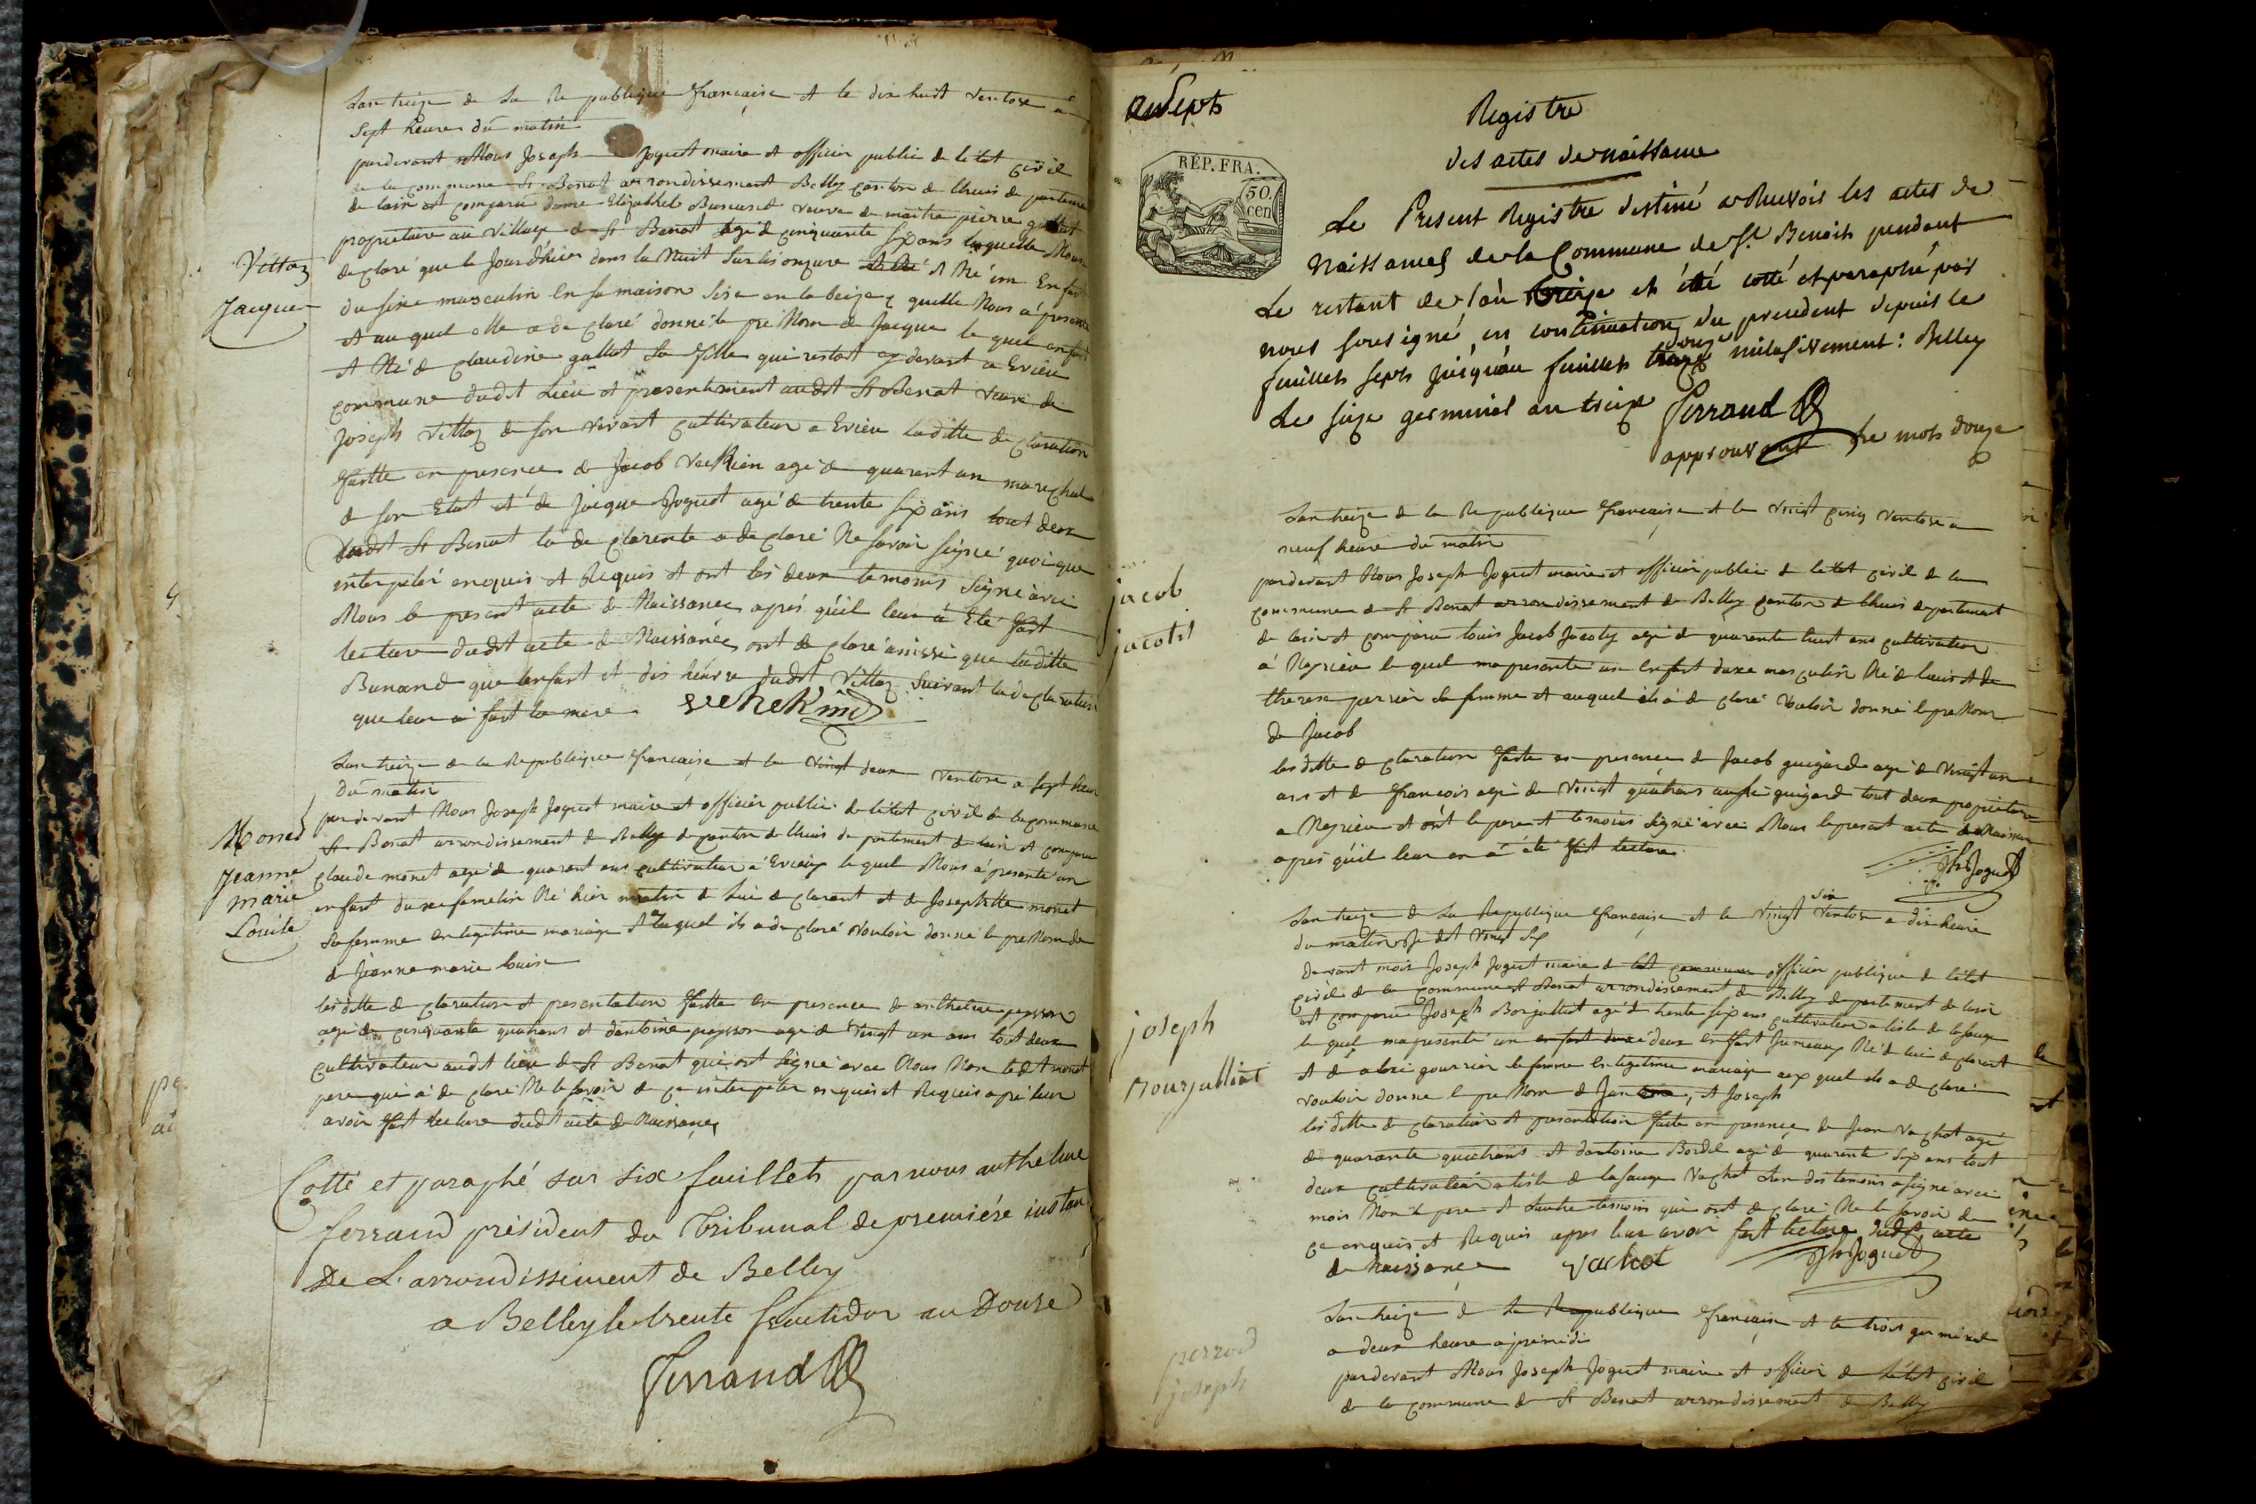 Lan treize de la Republique francaise et le dix huit ventose a
sept heure du matin
pardevant Nous Joseph Joguet maire et officier public de letat civil
de la commune St Benat arrondissement Belley canton de lhuis de partement
de lain est comparu dame Elizabhet Bunand veuve de maitre pierre gallet
propriétaire au village de St Benat agé de cinquante six ans laquelle Nous
declaré que le Jourdhier dans la Nuit sur les onzure et Né un Enfant
du sexe masculin En sa maison quelle Nous a presenté
et au quel elle a de claré donné le preNom de Jacque le quel enfant
et Né de claudine gallet sa fille qui restoit cy devant a Evieu
commune dudit Lieu et presentement audit St Benat veuve de
Joseph Vittoz de son vivant cultivateur a Evieu laditte de claration
faitte en presence de Jacob agé de quarant an marechal
de son Etat et de Jacque Joguet agé de trente six ans tout deux
dudit St Benat la de clarente a de claré Ne savoir signé quoique
interpelé enquis et Requis et ont les deux temoins signé avec
Nous le present acte de Naissance aprés qu'il leur a Eté fait
lecture dudit acte de Naissance, ont de claré aussi que laditte
Bunand que lenfant et dudit Vittoz suivant la de claration
que leur a fait la mere
Vittoz
Jacque
Lan treize de la Republique francaise et le vingt deux ventose a sept heur
du matin
pardevant Nous Joseph Joguet maire et officier public de letat civil de la commune
St Benat arrondissement de Belley de canton de lhuis de partement de lain et comparu
claude monet agé de quarant ans cultivateur a Evieu le quel Nous a presenté un
enfant du sexe femelin Né hier matin de lui de clarent et de Josephtte monet
sa femme en legitime mariage et auquel ils a de claré vouloir donné le preNom de
de Jeanne marie louise
lesditte de claration et presentation faitte en presence de anthelme peysson
agé de cinquante quatrans et dantoine peysson agé de vingt un ans tout deux
cultivateur audit lieu de St Benat qui ont signé avec Nous Non ledit monet
pere qui a de claré Ne le savoir de ce interpeler enquis et Requis apré leur
avoir fait lecture dudit acte de Naissance
Monet
Jeanne
marie
Louise
Cotté et paraphé sur six feuillets par nous anthelme
ferrand président du Tribunal de premiére instan
De L'arrondissement de Belley
a Belley le trente fructidor an Douze
Ferrand
an Sept
RÉP. FRA.
50.
cen
Registre
des actes de naissance
Le Present Registre destiné a Recevoir les actes de
Naissances de la Commune de St Benoit pendant
Le restant de l'an treize et été cotté et paraphé par
nous sousigné, en continuation du precedent depuis le
feuillet sept jusqu'au feuillet douze inclusivement: Belley
Le seize germinal an treize Ferrand
approuvant Le mot douze
Lan treize de la Republique francaise et le vingt cinq ventose a
neuf heure du matin
pardevant Nous Joseph Joguet maire et officier public de letat civil de la
commune de St Benat arrondissement de Belley canton de lhuis departement
de lain et comparu louis Jacob Jacoty agé de quarante huit ans cultivateur
a Neyrieu le quel ma presente un enfant du sexe masculin Né de luis et de
therese perrier sa femme et auquel ils a de claré vouloir donné le preNom
de Jacob
lesditte de claration faite en presence de Jacob guigard agé de vingt un
ans et de francois agé de vingt quatrans aussi guigard tout deux propriétere
a Neyrieu et ont le pere et temoins signé avec Nous le present acte de Naissance
apres quil leur en a été fait lecture
Jh Joguet
jacob
jacotil
Lan treize de la Republique francaise et le vingt six ventose a dix heure
du matin je dit vingt six
devant mois Joseph Joguet maire et officier publique de letat
civil de la commune St Benat arrondissement de Belley departement de lain
est comparu Joseph Borjalliot agé de trente six ans cultivateur a lisle de la sauge
le quel ma presenté un enfant deux Enfant Jumeaux Né de lui de clarent
et de gourrier sa femme en legitime mariage aux quel ils a de claré
vouloir donne le preNom de Jan, et Joseph
lesditte de claration et presentation faite en presence de Jean Vachot agé
de quarante quatrans et dantoine Bordel agé de quarente six ans tout
deux cultivateur a lisle de la sauge Vachot Lun des temoins a signé avec
mois Non le pere et lautre temoins qui ont de claré Ne le savoir de
ce enquis et Requis apres leur avoir fait lecture dudit acte
de Naissance Vachot Jh Joguet
joseph
bourjalliot
Lan treize de la Republique francaise et le trois germinal
a deux heure apremidi
pardevant Nous Joseph Joguet maire et officier de letat civil
de la commune de St Benat arrondissement de Belley
perrod
joseph